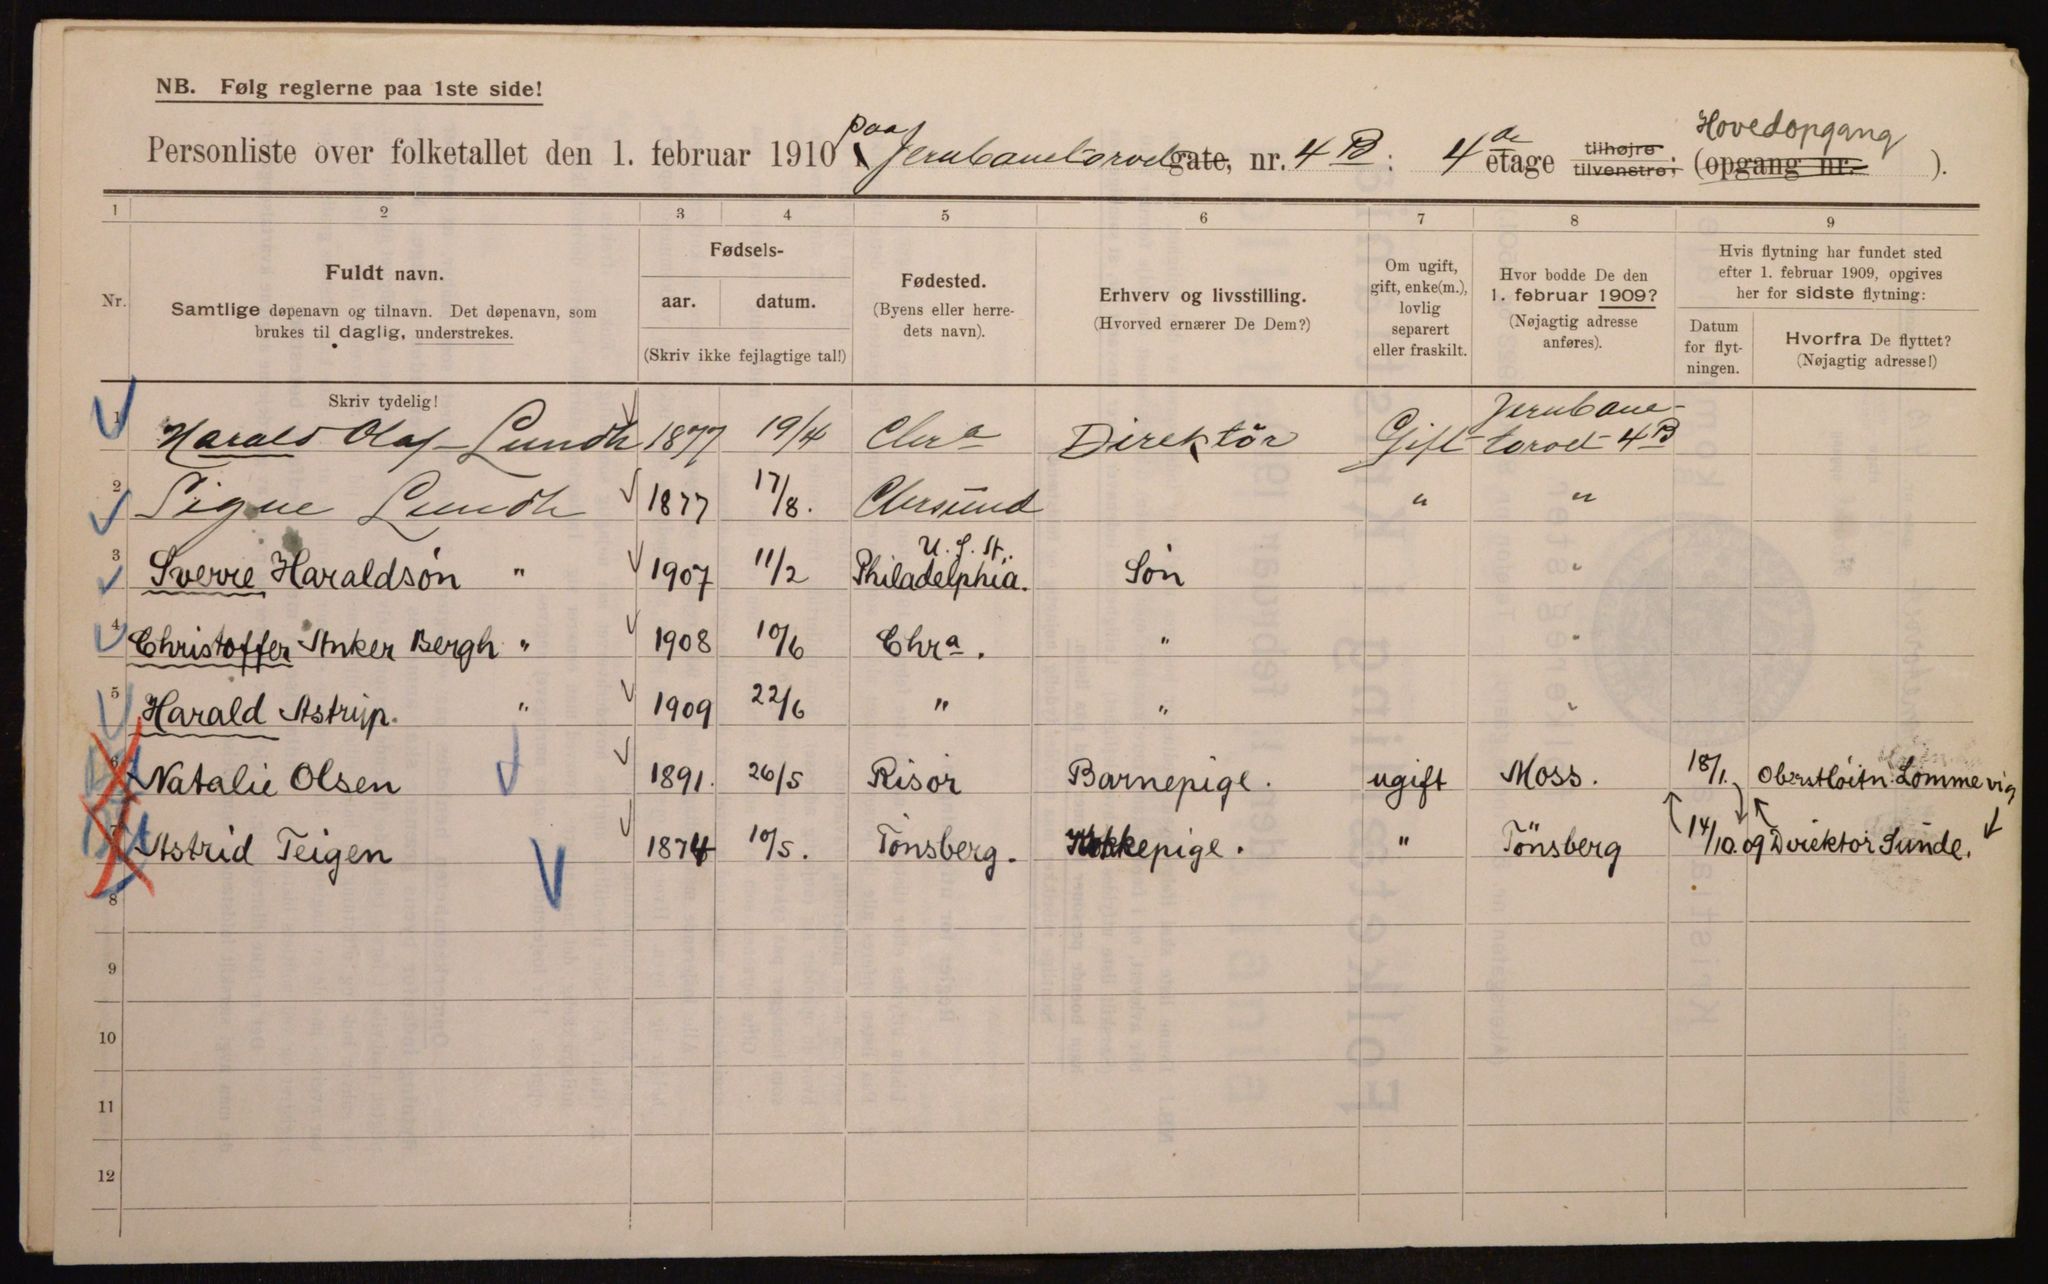 NB. Følg reglerne paa 1ste side!
Hovedopgang
Personliste over folketallet den 1. februar 1910 paa Jernbanetorvet gate, nr. 4 B : 4de etage tilhøjre tilvenstre; (opgang nr. ).
1 2 3 4 5 6 7 8 9
Nr.
Fuldt navn.
Samtlige døpenavn og tilnavn. Det døpenavn, som
brukes til daglig, understrekes.
Skriv tydelig!
Fødsels-
aar. datum.
(Skriv ikke fejlagtige tal!)
Fødested.
(Byens eller herre-
dets navn).
Erhverv og livsstilling.
(Hvorved ernærer De Dem?)
Om ugift,
gift, enke(m.),
lovlig
separert
eller fraskilt.
Hvor bodde De den
1. februar 1909?
(Nøjagtig adresse
anføres).
Hvis flytning har fundet sted
efter 1. februar 1909, opgives
her for sidste flytning:
Datum
for flyt-
ningen.
Hvorfra De flyttet?
(Nøjagtig adresse!)
1 Harald Olaf Lundh 1877 19/4 Chra Direktör Gift Jernbane-
torvet 4B
2 Signe Lundh 1877 17/8. Chrsund " "
3 Sverre Haraldsön " 1907 11/2 Philadelphia. U. S. St. Sön "
4 Christoffer Anker Bergh " 1908 10/6 Chra. " "
5 Harald Astrup. " 1909 22/6 " " "
6 Natalie Olsen 1891. 26/5 Risör Barnepige. ugift Moss. 18/1. Oberstlöitn. Lommevig
7 Astrid Teigen 1874 10/5. Tönsberg. Kokkepige. " Tönsberg 14/10.09 Direktör Sunde.
8
9
10
11
12